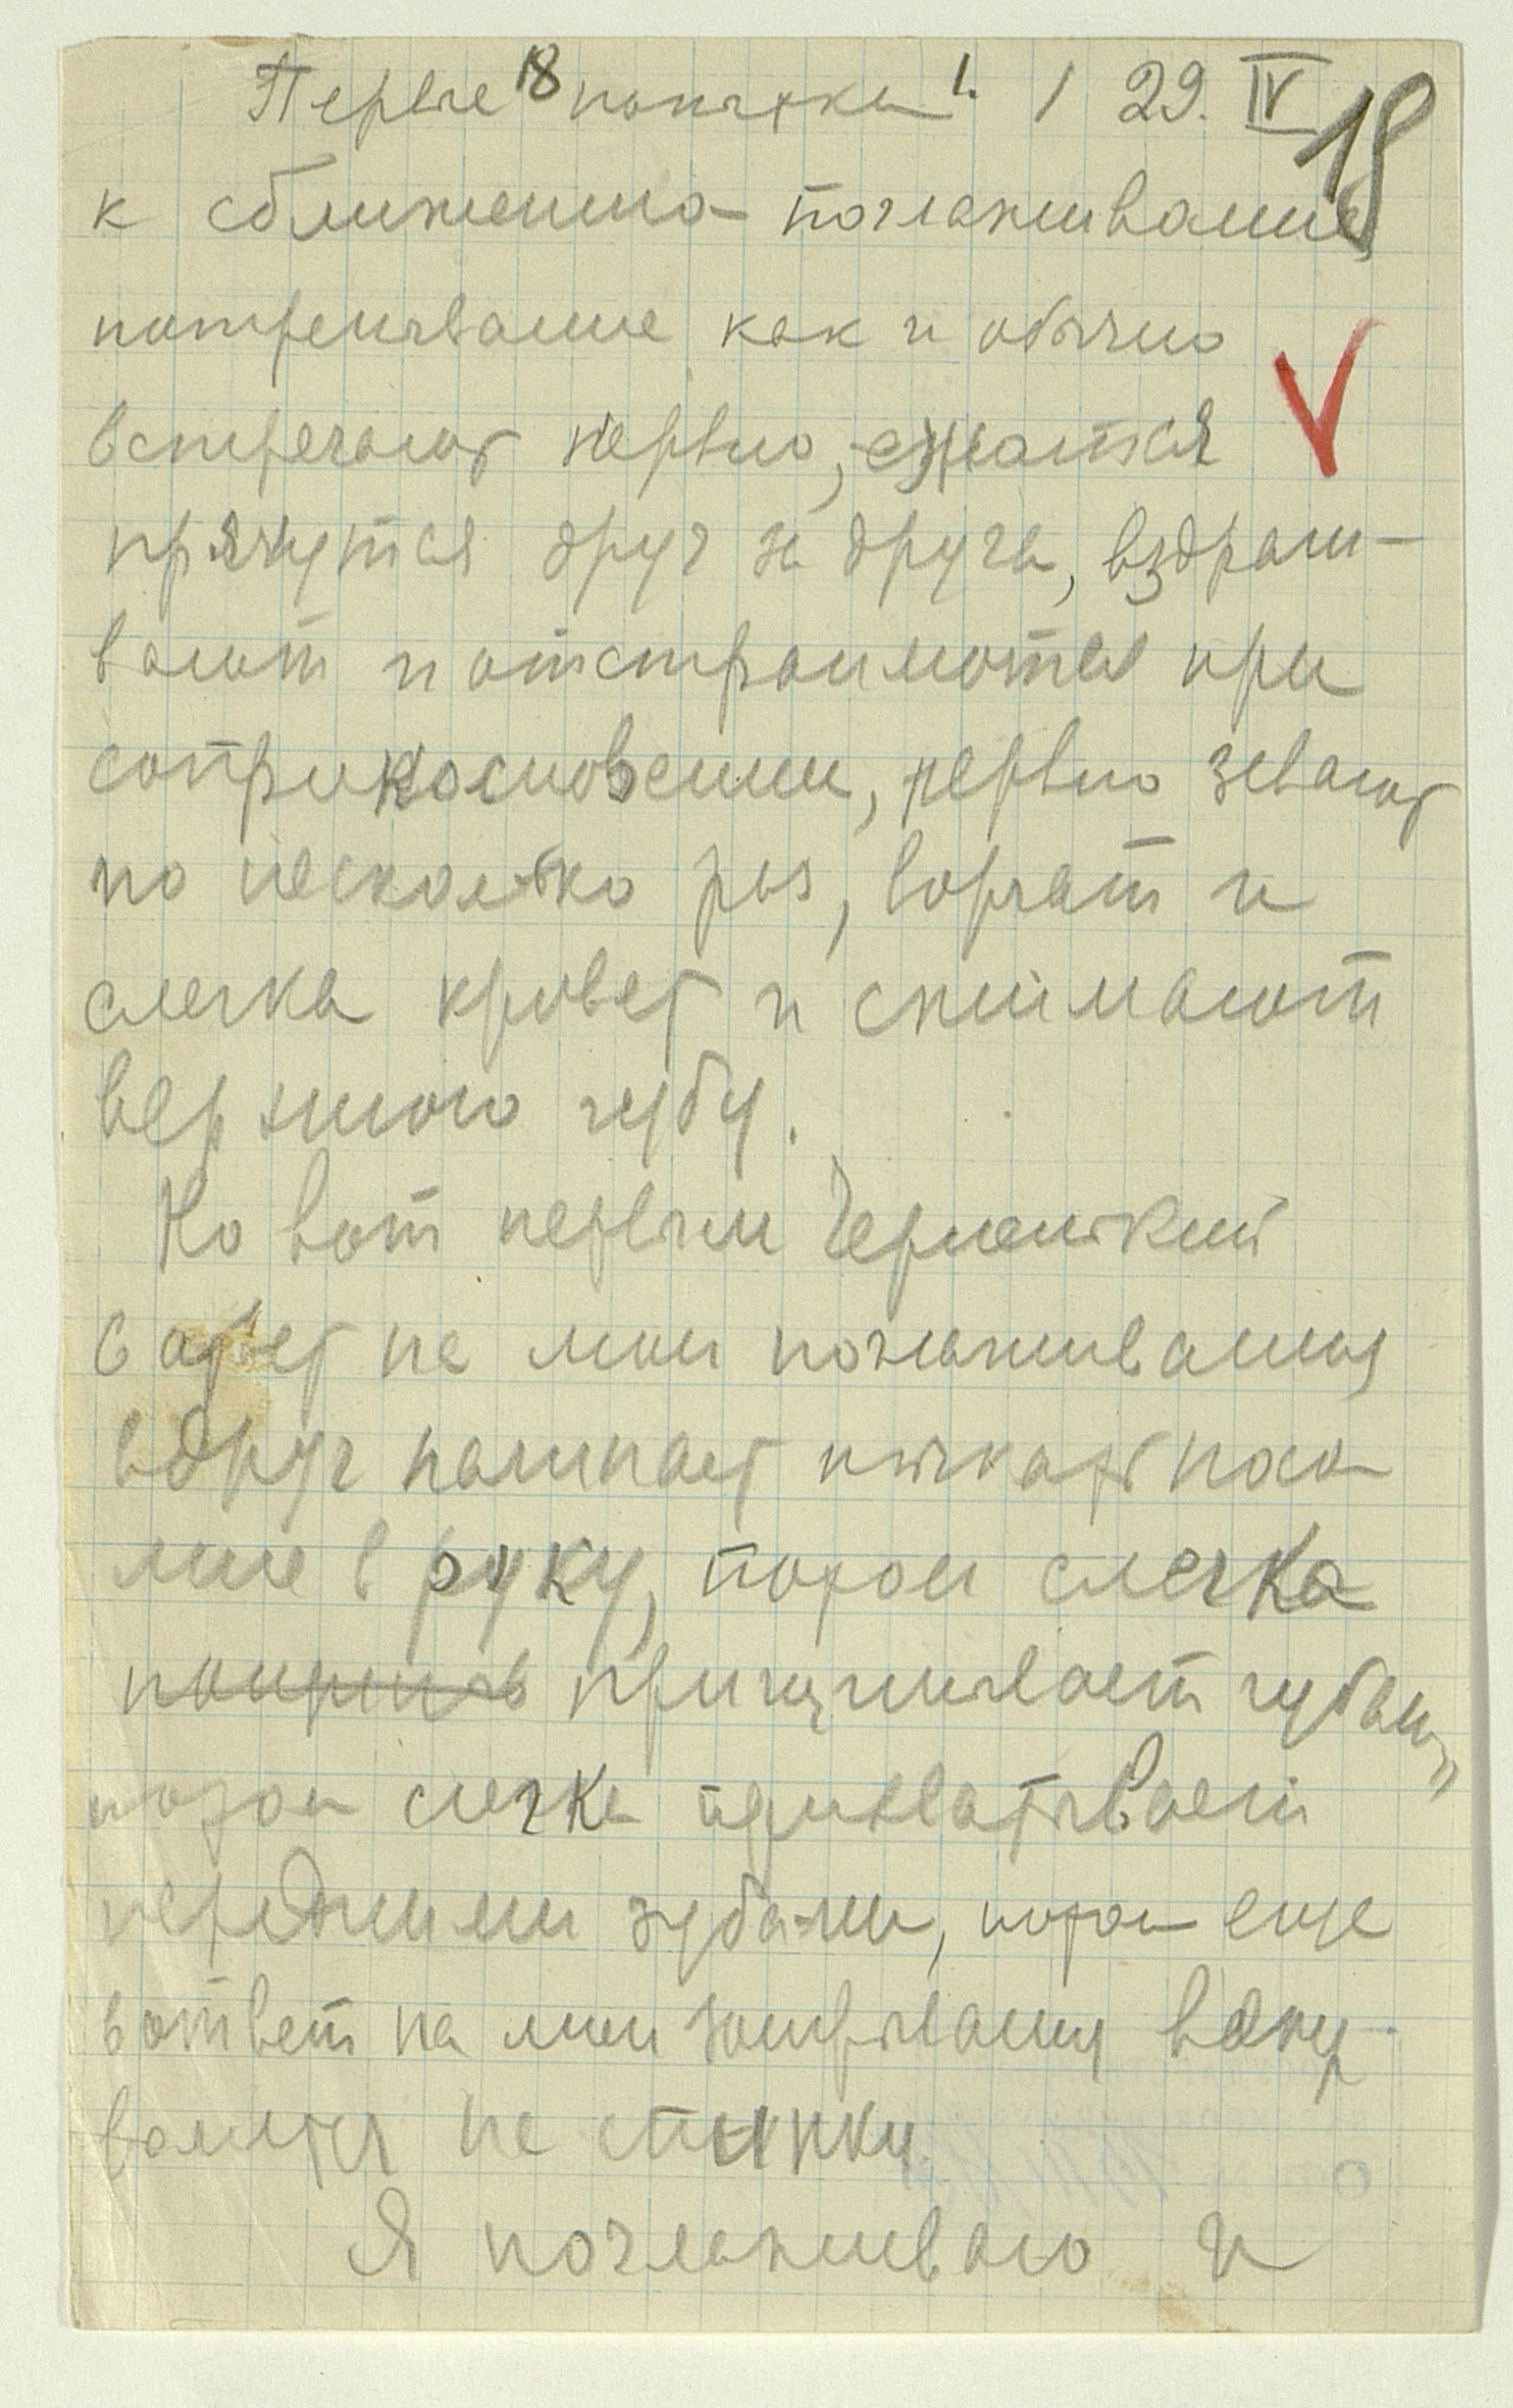 Первые 18 попытки 1. / 29. IV 18
к сближению поглаживание,
потрепывание как и обычно
встречают нервно, ежатся
прячутся друг за друга, вздраги-
вают и отстраняются при
соприкосновении, нервно зевают
по несколько раз, ворчат и
слегка кривят и снимают
верхнюю губу.
Но вот первым Черненький
в ответ на мои поглаживания
вдруг начинает тыкать носом
мне в руку, потом слегка
прищупывает губами,
потом слегка прихватывает
передними зубами, потом еще
в ответ на мои заигрывания вдруг
валится на спинку.
Я поглаживаю и